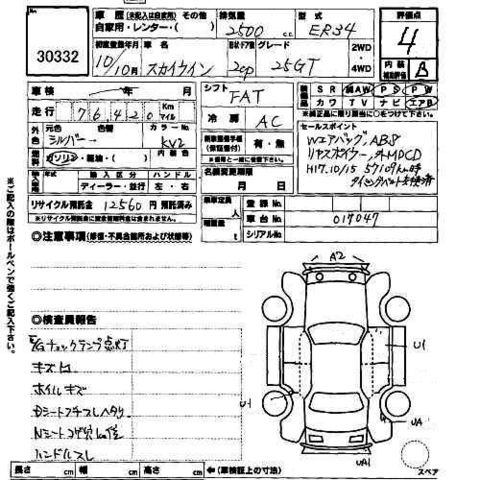 車歴(未記入は自家用) その他 排気量 型式 評価点
30332 自家用・レンター・( ) 2500 c.c. ER34 4
初度登録年月 車名 ドア型 グレード 2WD 内装
10/10月 スカイライン 2cp 25GT ・4WD 補助評価 B
車検 年 月 シフト 装備品 S R 純AW P S P W
FAT カワ T V ナビ エアB
走行 76420 Km マイル 冷房
AC セールスポイント
外色 元色 色替 カラーNo. 内装色 Wエアバッグ、ABS
シルバー KV2 有・無 リヤスポイラー、社外MDCD
燃料 ガソリン・軽油・( ) H17.10/15 57109km時
輸入 輸入区分 ハンドル 名義変更期限 タイミングベルト交換済
ディーラー・並行 左・右 月 日
リサイクル預託金 12560円 預託済み 乗車定員 人 登録No.
積載量 t 車台No. 017047
シリアルNo.
◎注意事項(修復・不具合箇所および状態等)
※ご記入の際はボールペンで強くご記入下さい。
A2
◎検査員報告
E/Gチェックランプ点灯
キズ凹 U1 U1
ホイルキズ
Dシートフチスレヘタリ
Nシートコゲ穴 UA
ハンドルスレ UA1
スペア
長さ cm 幅 cm 高さ cm ←(車検証上の寸法)